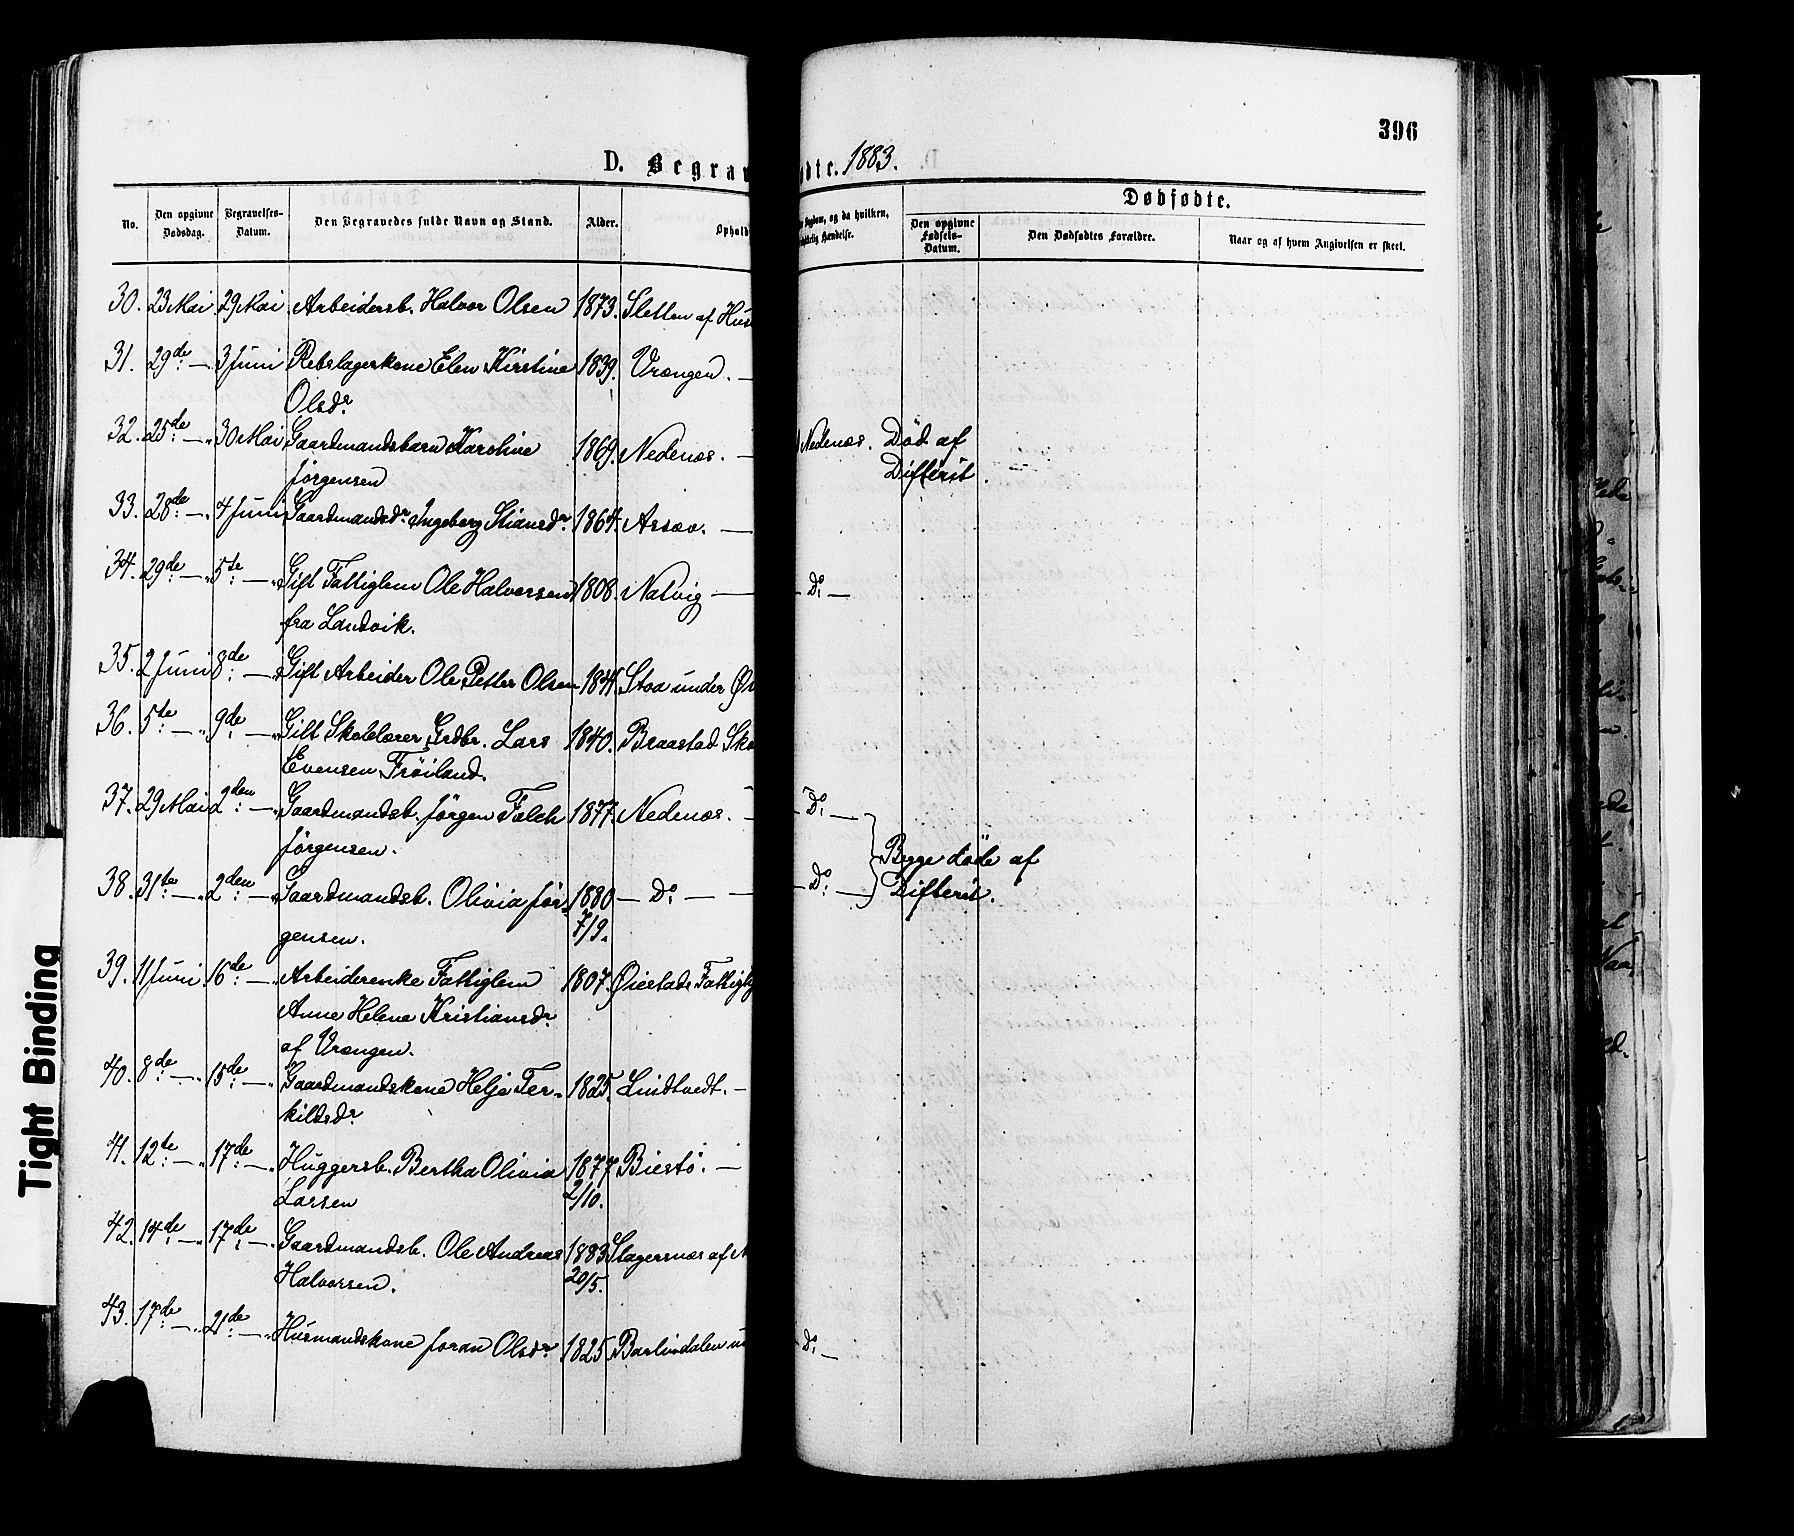 396
D. Begra
dte. 1883.
Dødfødte.
No.
Den opgivne Dødsdag.
Begravelses-Datum.
Den Begravedes fulde Navn og Stand.
Alder.
Ophold
Sygdom, og da hvilken,
Hændelse.
Den opgivne Fødsels-Datum.
Den Dødfødtes Forældre.
Naar og af hvem Angivelsen er skeet.
30. 23 Mai 29 Mai Arbeidersb. Halvor Olsen 1873. Sletten af Hus
31. 29de — 3 Juni Rebslagerkone Elen Kirstine 1839. Vrængen. —
Olsdr
32. 25de — 30 Mai Gaardmandsbarn Karoline 1869. Nedenæs. — Nedenæs. Død af
Jørgensen Difterit.
33. 28de — 4 Juni Gaardmandsdr Ingeborg Stiansdr 1864. Assæv. —
34. 29de — 5te — Gift Fattiglem Ole Halvorsen 1808. Natvig — — Do —
fra Landvik.
35. 2 Juni 8de — Gift Arbeider Ole Petter Olsen 1841. Stoa under Øs
36. 5te — 9de — Gift Skolelærer Grdbr. Lars 1840. Braastad Sko
Evensen Frøiland.
37. 29 Mai 2den — Gaardmandsb. Jørgen Falck 1877. Nedenæs. — — Do —
Jørgensen. Begge døde af
38. 31te — 2den — Gaardmandsb. Olivia Jør- 1880 — Do — — Do — Difterit.
gensen. 7/9.
39. 11 Juni 16de — Arbeiderenke Fattiglem 1807. Øiestads Fattig
Anne Helene Kristiansdr
af Vrængen.
40. 8de — 15de — Gaardmandskone Helje Ter- 1825. Lindtvedt. —
kildsdr
41. 12te — 17de — Huggersb. Bertha Olivia 1877 Biestø. —
Larsen 2/10.
42. 14de — 17de — Gaardmandsb. Ole Andreas 1883 Slagersnæs af
Halvorsen. 20/5.
43. 17de — 21de — Husmandskone Joran Olsdr 1825. Barlindalen un — Do —
Tight Binding